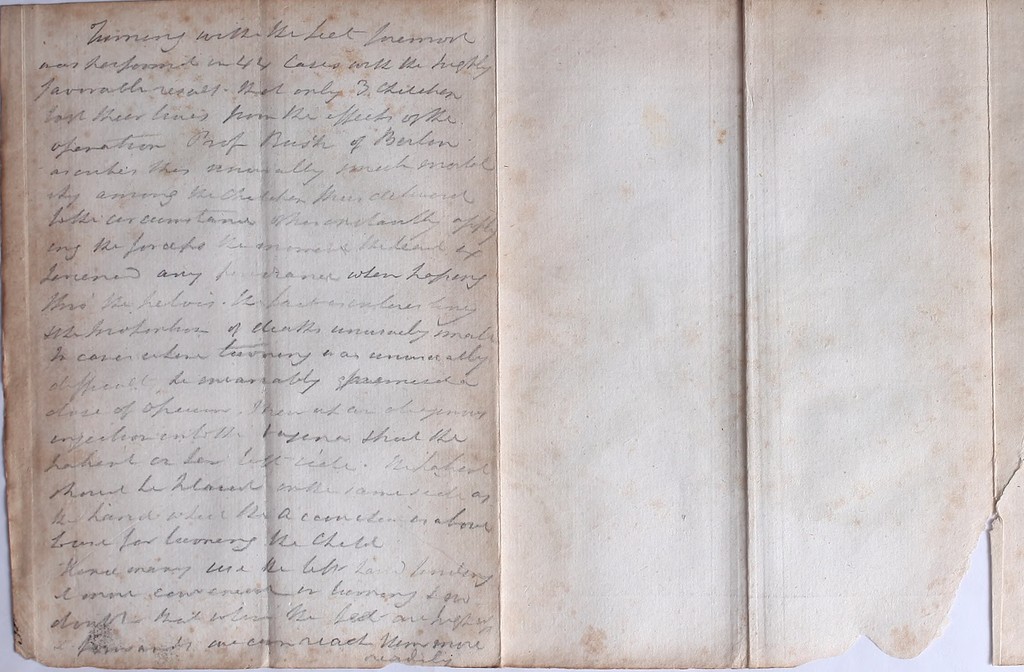 Turning with the feet foremost
was performed in 44 Cases with the highly
favorable result that only 3 Children
lost their lives from the effects of the
operation Prof Busk of Berlin
ascribes this unusually small mortal
ity among the Children thus delivered
to the circumstance of his constantly apply
ing the forceps the moment the head ex
perienced any hindrance when passing
thro the pelvis. the fact is interesting
the proportion of deaths unusually small
In cases where turning was unusually
difficult, he invariably premised a
dose of opium. Then at an oleaginous
injection into the vagina & put the
patient on her left side. The patient
should be placed on the same side as
the hand which the Accoucheur is about
to use for turning the Child
Hence many use the left hand finding
it more convenient in turning & no
doubt that when the feet are high up
& forwards we can reach them more
readily